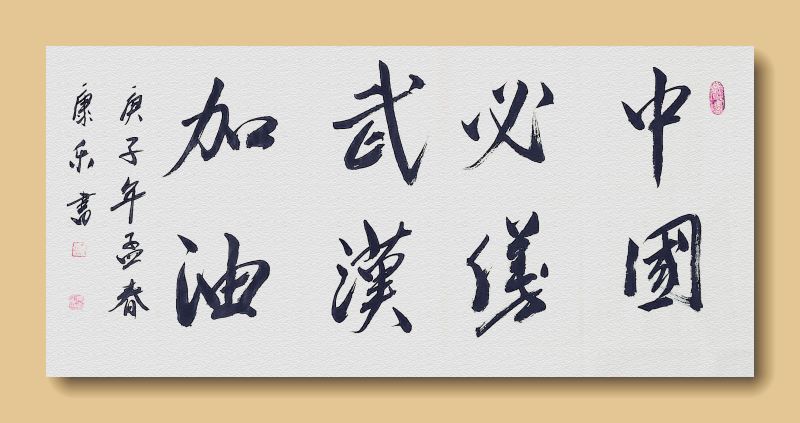 中國
必勝
武漢
加油
庚子年孟春
康乐書